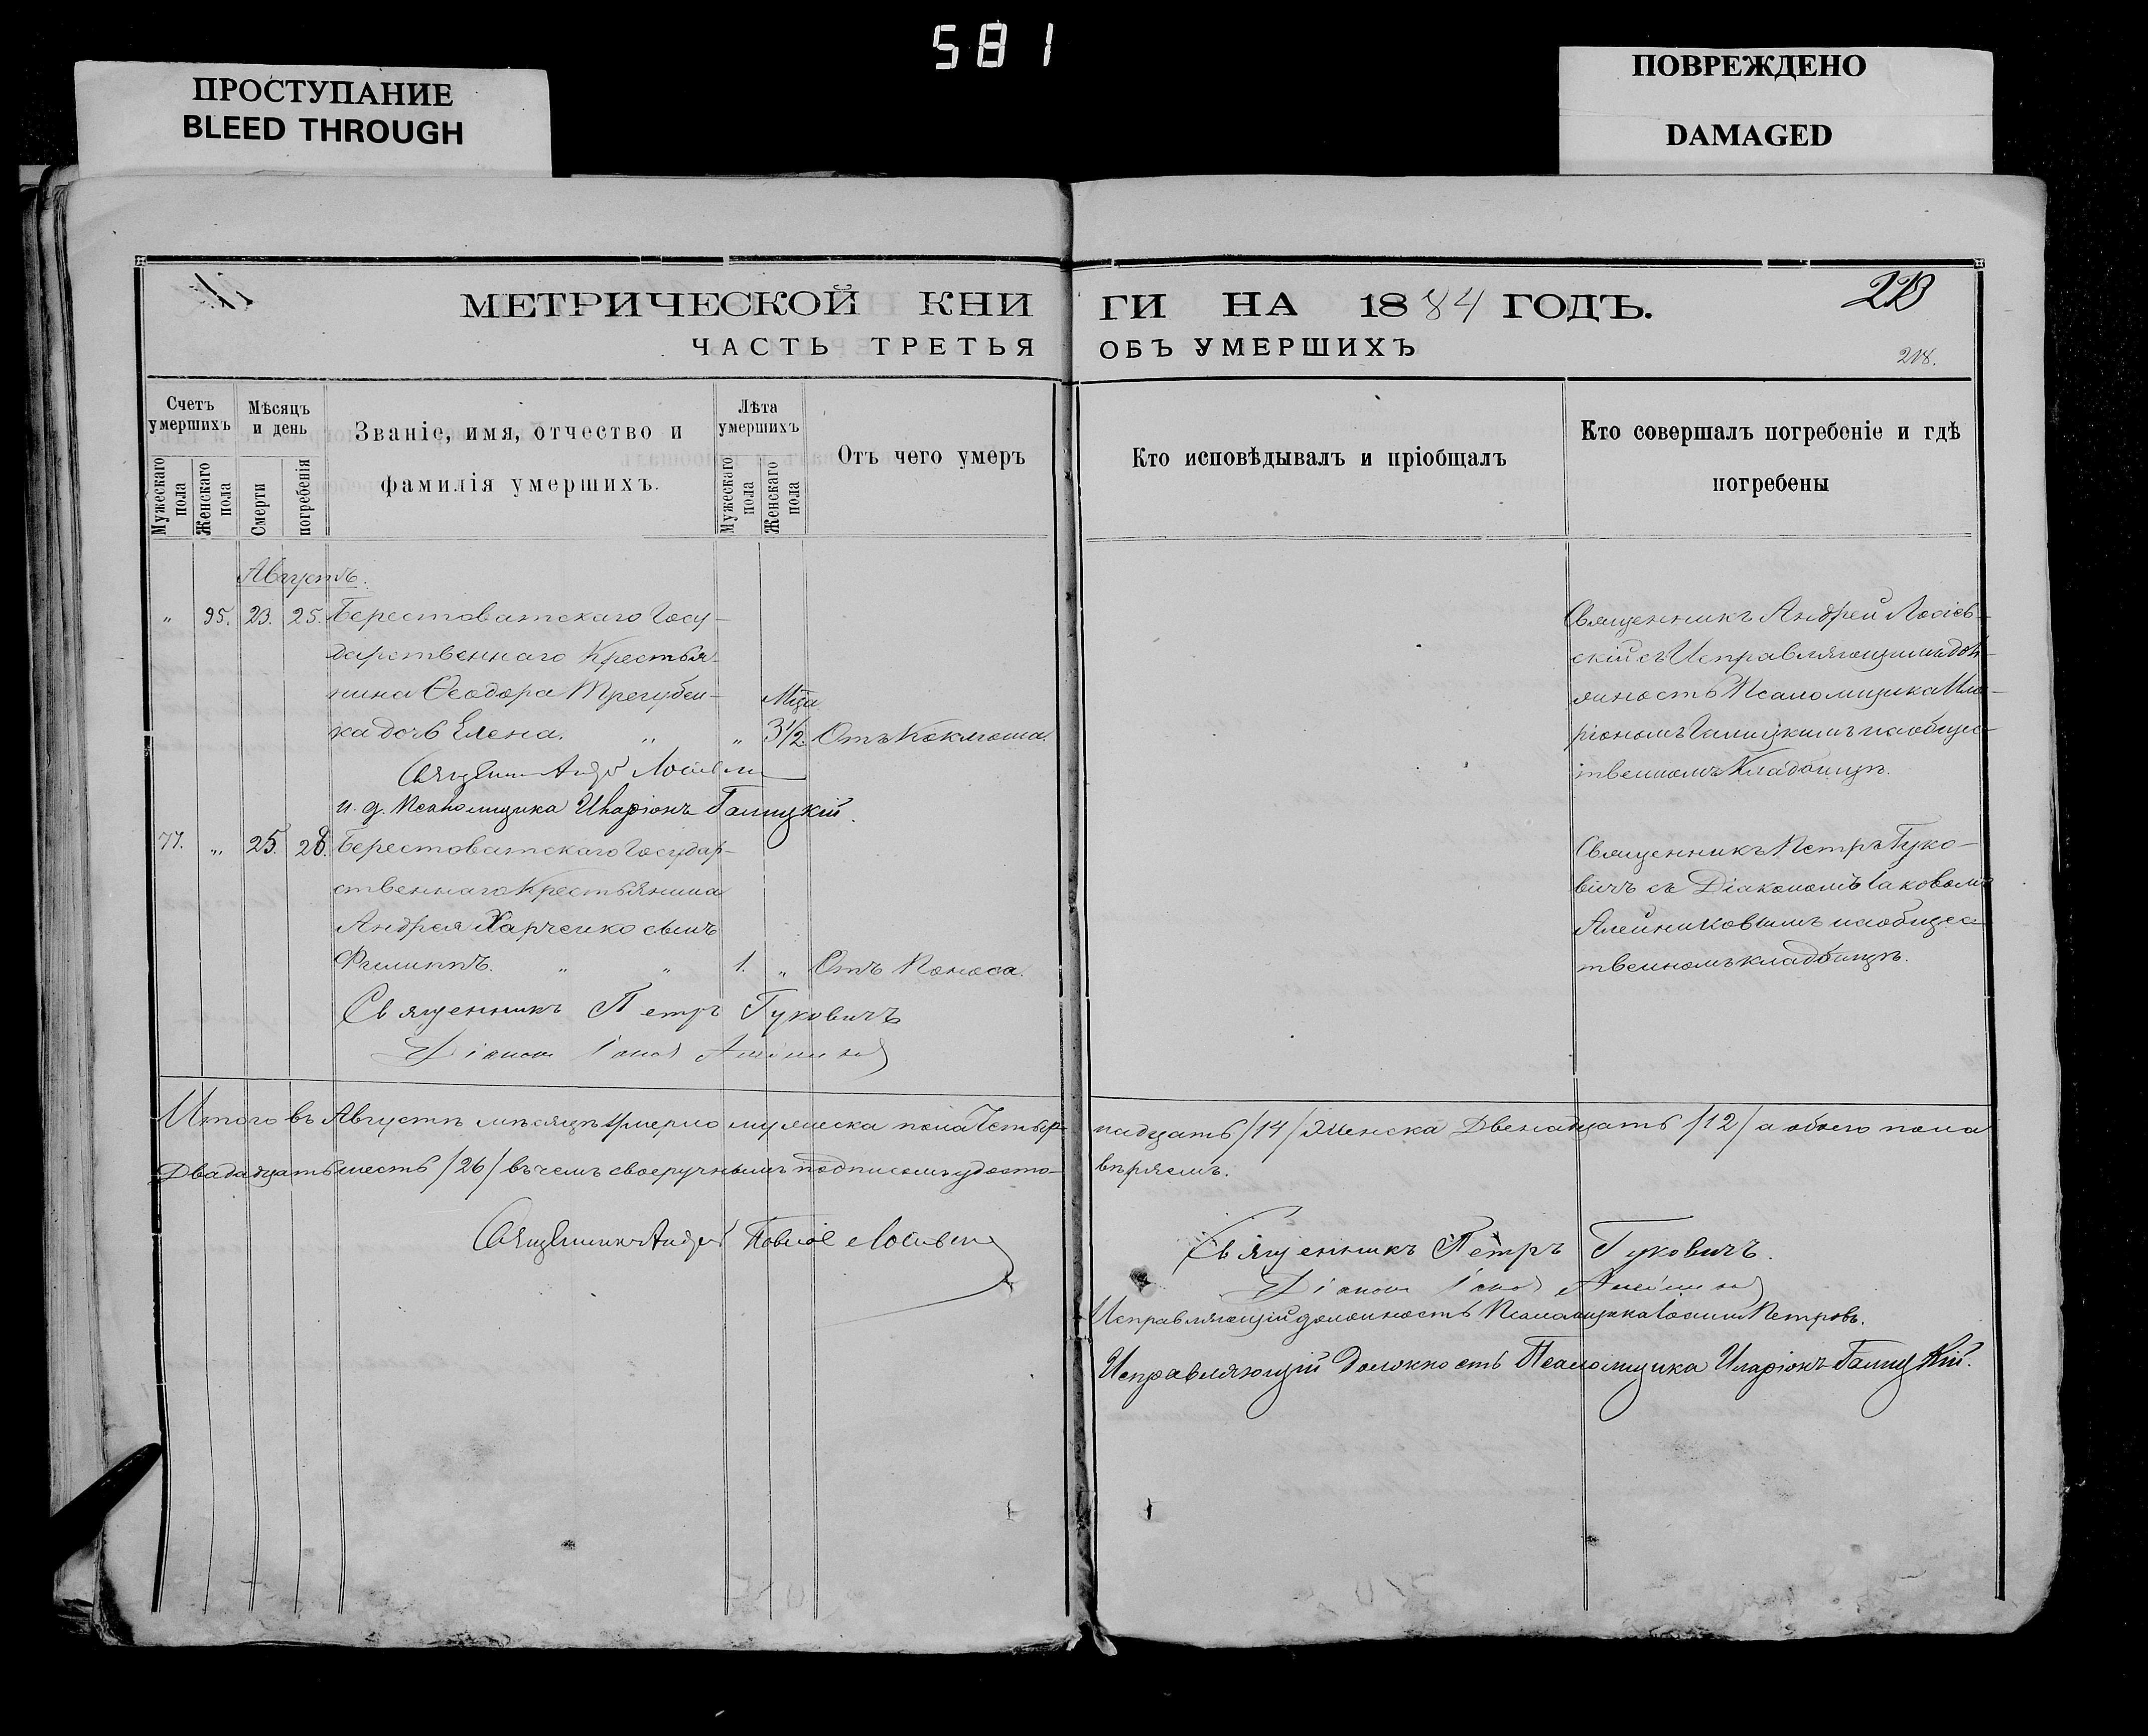 581
ПРОСТУПАНИЕ
BLEED THROUGH
ПОВРЕЖДЕНО
DAMAGED
МЕТРИЧЕСКОЙ КНИ
ГИ НА 1884 ГОДЪ.
ЧАСТЬ ТРЕТЬЯ
ОБЪ УМЕРШИХЪ
218.
Счетъ умершихъ
Мужескаго пола
Женскаго пола
Мѣсяцъ и день
Смерти
погребенія
Званіе, имя, отчество и
фамилія умершихъ.
Лѣта умершихъ
Мужескаго пола
Женскаго пола
Отъ чего умеръ
Кто исповѣдывалъ и пріобщалъ
Кто совершалъ погребеніе и гдѣ
погребены
Августъ.
" 95. 23. 25. Берестоватскаго Госу-
дарственнаго Крестья-
нина Ѳеодора Трегубен-
ка дочь Елена. " " Мцы 3½. Отъ Коклюша.
Священникъ Андрей
и. д. Псаломщика Иларіонъ Галицкій.
Священникъ Андрей Лосіев-
скій съ Исправляющимъ дол-
жность Псаломщика Ила-
ріономъ Галицкимъ на общес-
твенномъ Кладбищѣ.
77. " 25. 28. Берестоватскаго Государ-
ственнаго Крестьянина
Андрея Харченко сынъ
Филиппъ. " " 1. " Отъ Поноса.
Священникъ Петръ Гуковичъ
Діаконъ Іаковъ
Священникъ Петръ Гуко-
вичъ съ Діакономъ Іаковомъ
Алейниковымъ на общес-
твенномъ кладбищѣ.
Итого въ Августѣ мѣсяцѣ умерло мужеска пола Четыр-
надцать /14/ Женска Двенадцать /12/ а обоего пола
Двададцать шесть /26/ въ чемъ своеручнымъ подписомъ удосто-
вѣряемъ.
Священникъ Андрей
Священникъ Петръ Гуковичъ.
Діаконъ Іаковъ
Исправляющій должность Псаломщика Іоаннъ Петровъ.
Исправляющій Должность Псаломщика Иларіонъ Галицкій.